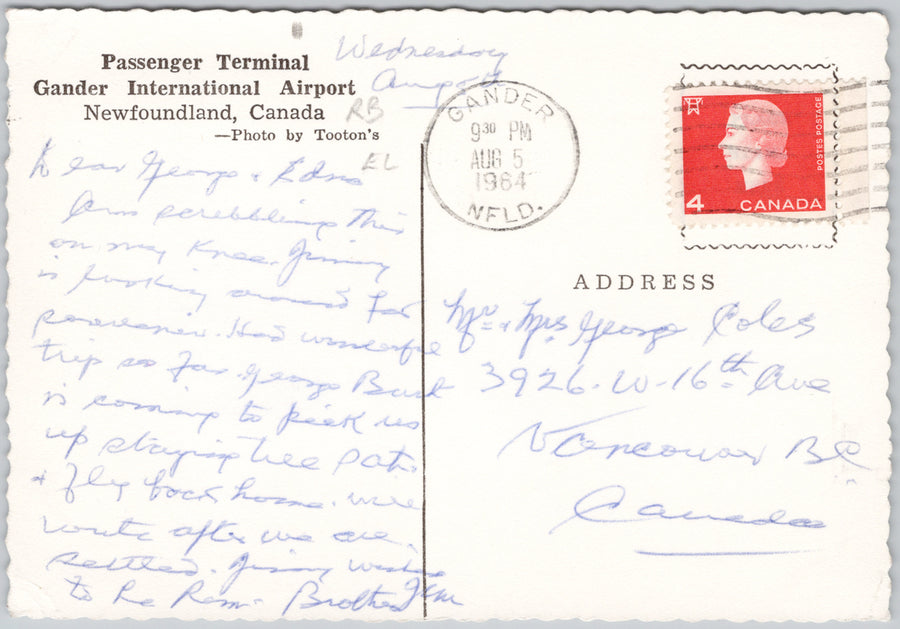 Passenger Terminal
Gander International Airport
Newfoundland, Canada
—Photo by Tooton's
Wednesday
Aug 5th
RB
EL
GANDER
930 PM
AUG 5
1964
NFLD.
POSTES POSTAGE
4 CANADA
Dear George & Edna
Am scribbling this
on my knee. Jimmy
is looking around for
souvenir. Had wonderful
trip so far. George Burt
is coming to pick us
up staying till Sat.
& fly back home. will
write after we are
settled. Jimmy wishes
to be Rem. Brother Jim
ADDRESS
Mr. & Mrs George Coles
3926-W-16th Ave
Vancouver BC
Canada